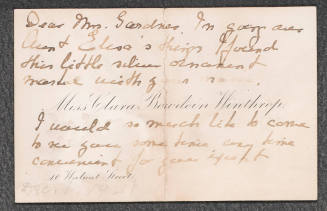 Dear Mrs. Gardner, In going over
Aunt Eliza's things I found
this little silver ornament
marked with your name.
Miss Clara Bowdoin Winthrop.
I would so much like to come
to see you some time, any time
convenient for you except
10 Walnut Street.